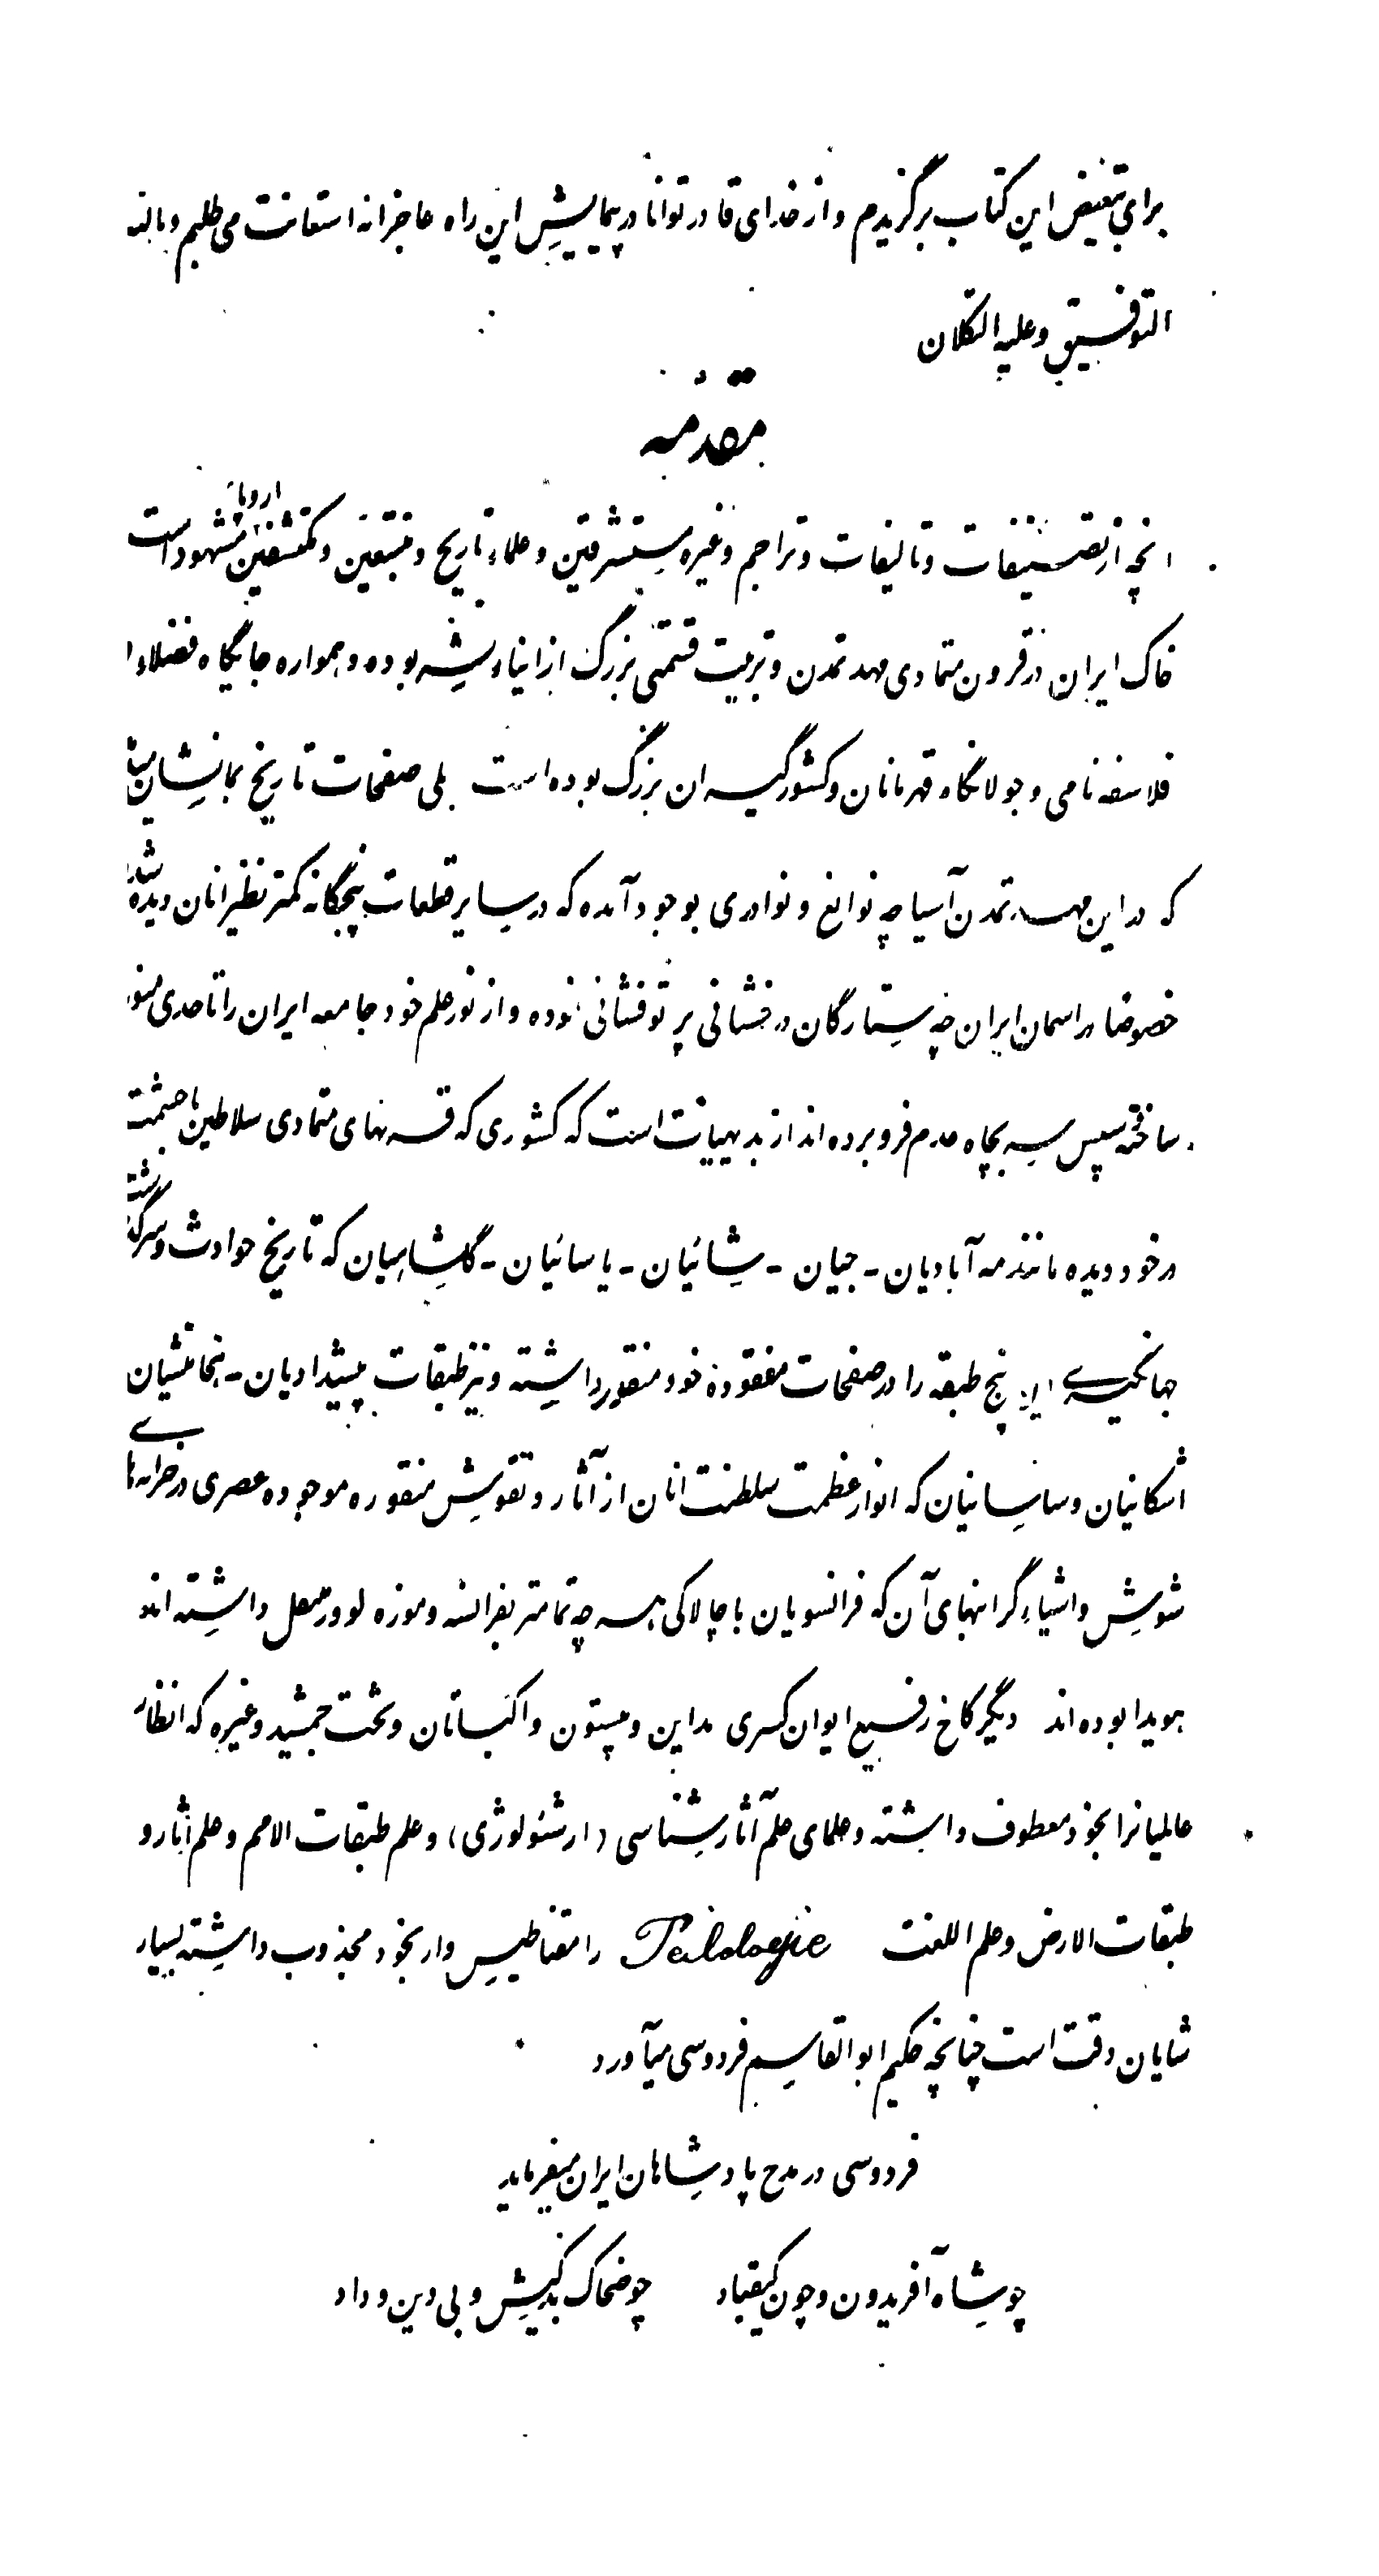 برای تبییض این کتاب برگزیدم و از خدای قادر توانا در پیمایش این راه عاجزانه استعانت می طلبم و بالله
التوفیق و علیه التکلان
مقدمه
انچه از تصنیفات و تالیفات و تراجم و غیره مستشرقین و علماء تاریخ و متتبعین و مکتشفین اروپا مشهود است
خاک ایران در قرون متمادی مهد تمدن و تربیت قسمتی بزرگ از ابناء بشر بوده و همواره جایگاه فضلاء و
فلاسفه نامی و جولانگاه قهرمانان و کشورگیران بزرگ بوده است بلی صفحات تاریخ بما نشان میدهد
که در این مهد تمدن آسیا چه نوابغ و نوادری بوجود آمده که در سایر قطعات پنجگانه کمتر نظیر انان دیده شده
خصوصا در اسمان ایران چه ستارگان درخشانی پرتوفشانی نموده و از نور علم خود جامعه ایران را تا حدی منور
ساخته سپس سر بچاه عدم فرو برده اند از بدیهیات است که کشوری که قرنهای متمادی سلاطین با حشمت
در خود دیده مانند مه آبادیان - جیان - شائیان - یاسائیان - گلشاهیان که تاریخ حوادث و سرگذشت
جهانگیری این پنج طبقه را در صفحات مفقوده خود منقور داشته و نیز طبقات پیشدادیان - هخامنشیان
اشکانیان و ساسانیان که انوار عظمت سلطنت انان از آثار و نقوش منقوره موجوده عصری در خرابه های
شوش و اشیاء گرانبهای آن که فرانسویان با چالاکی هر چه تمامتر بفرانسه و موزه لوور منتقل داشته اند
هویدا بوده اند دیگر کاخ رفیع ایوان کسری مداین و بیستون و اکباتان و تخت جمشید و غیره که انظار
عالمیانرا بخود معطوف داشته و علمای علم آثار شناسی (ارشئولوژی) و علم طبقات الامم و علم آثار و
طبقات الارض و علم اللغت Palologie را مغناطیس وار بخود مجذوب داشته بسیار
شایان دقت است چنانچه حکیم ابوالقاسم فردوسی میآورد
فردوسی در مدح پادشاهان ایران میفرماید
چو شاه آفریدون و چون کیقباد چو ضحاک بدکیش و بی دین و داد